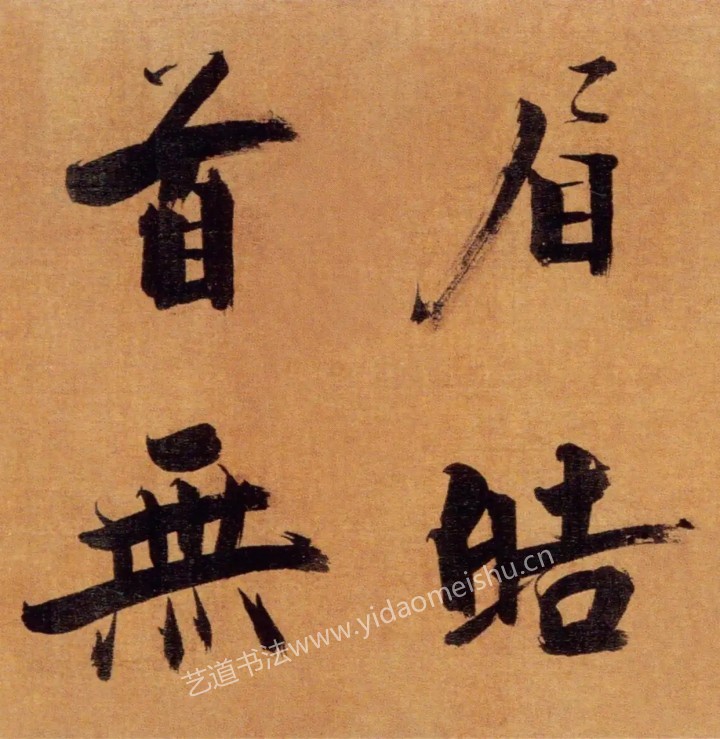 眉皓
首無
艺道书法www.yidaomeishu.cn